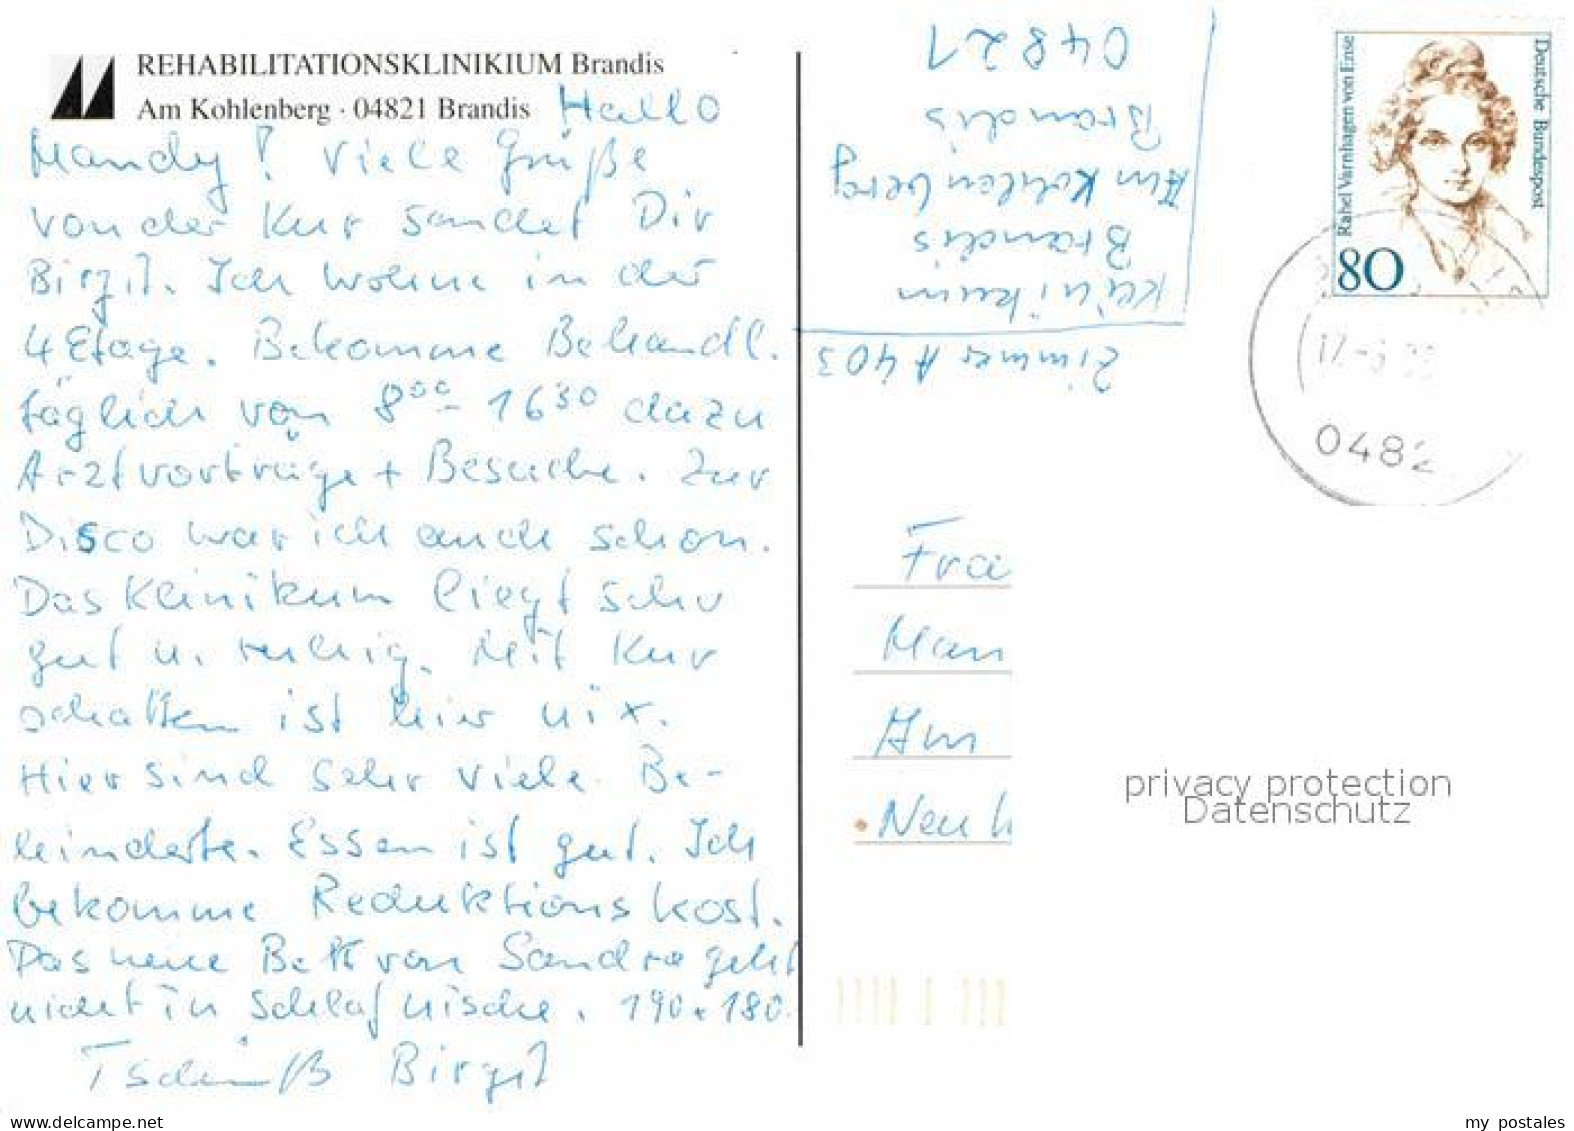 REHABILITATIONSKLINIKIUM Brandis
Am Kohlenberg · 04821 Brandis
Hallo
Mandy! Viele Grüße
von der Kur sendet Dir
Birgit. Ich wohne in der
4 Etage. Bekomme Behandl.
täglich von 8 00 - 16 30 dazu
Arztvorträge + Besuche. Zur
Disco war ich auch schon.
Das Klinikum liegt sehr
gut u. ruhig. Mit Kur
schatten ist hier nix.
Hier sind sehr viele Be-
hinderte. Essen ist gut. Ich
bekomme Reduktionskost.
Das neue Bett von Sandra geht
nicht in Schlafnische. 190 x 180.
Tschüß Birgit
Zimmer A 403
Klinikum
Brandis
Am Kohlenberg
Brandis
04821
Deutsche Bundespost
Rahel Varnhagen von Ense
80
0482
Fra
Man
Am
Neu
privacy protection
Datenschutz
www.delcampe.net
my_postales